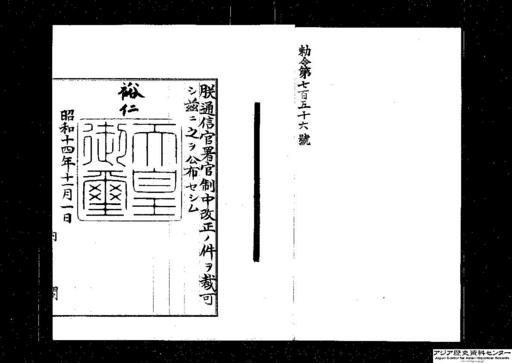 勅令第七百五十六號
朕通信官署官制中改正ノ件ヲ裁可
シ茲ニ之ヲ公布セシム
裕仁
天皇御璽
昭和十四年十一月一日
内閣
アジア歴史資料センター
Japan Center for Asian Historical Records